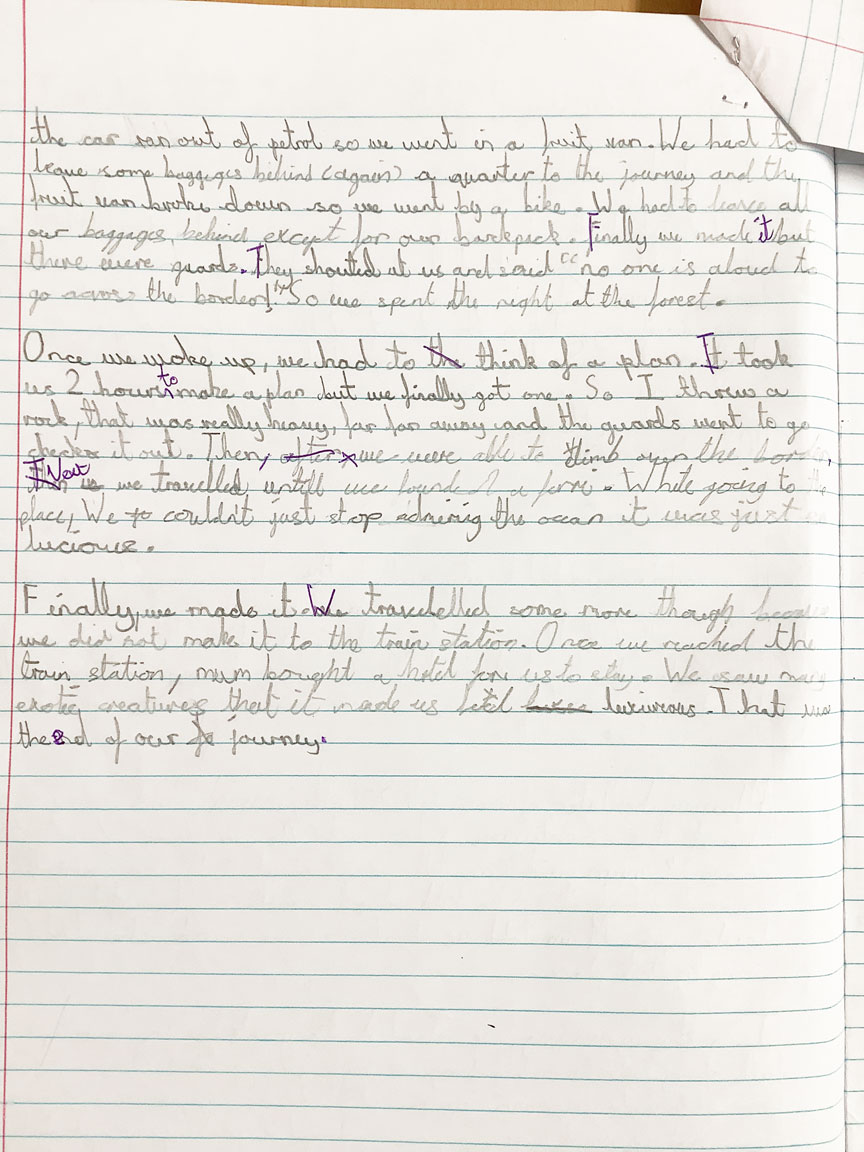 the car ran out of petrol so we went in a fruit van. We had to
leave some baggages behind (again) a quarter to the journey and the
fruit van broke down so we went by a bike. We had to leave all
our baggages, behind except for our backpack. Finally we made it but
there were guards. They shouted at us and said "no one is aloud to
go across the border!" So we spent the night at the forest.
Once we woke up, we had to think of a plan. It took
us 2 hours to make a plan but we finally got one. So I threw a
rock, that was really heavy, far far away and the guards went to go
check it out. Then, we were able to climb over the border,
Next we travelled untill we found a ferri. While going to the
place, We couldn't just stop admering the ocan it was just
lucious.
Finally, we made it We travelled some more though
we did not make it to the train station. Once we reached the
train station, mum bought a hotel for us to stay. We saw many
exotic creatures that it made us luxiurous. That was
the end of our journey.